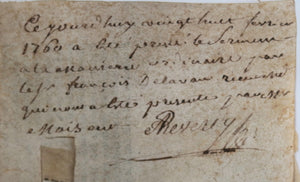 Ce jourdhuy vingt huit fevrier
1760 a esté presté le serment
a la maniere ordinaire par
le Sr françois Delavau
qui nous a esté presenté par Mr
Reverdy